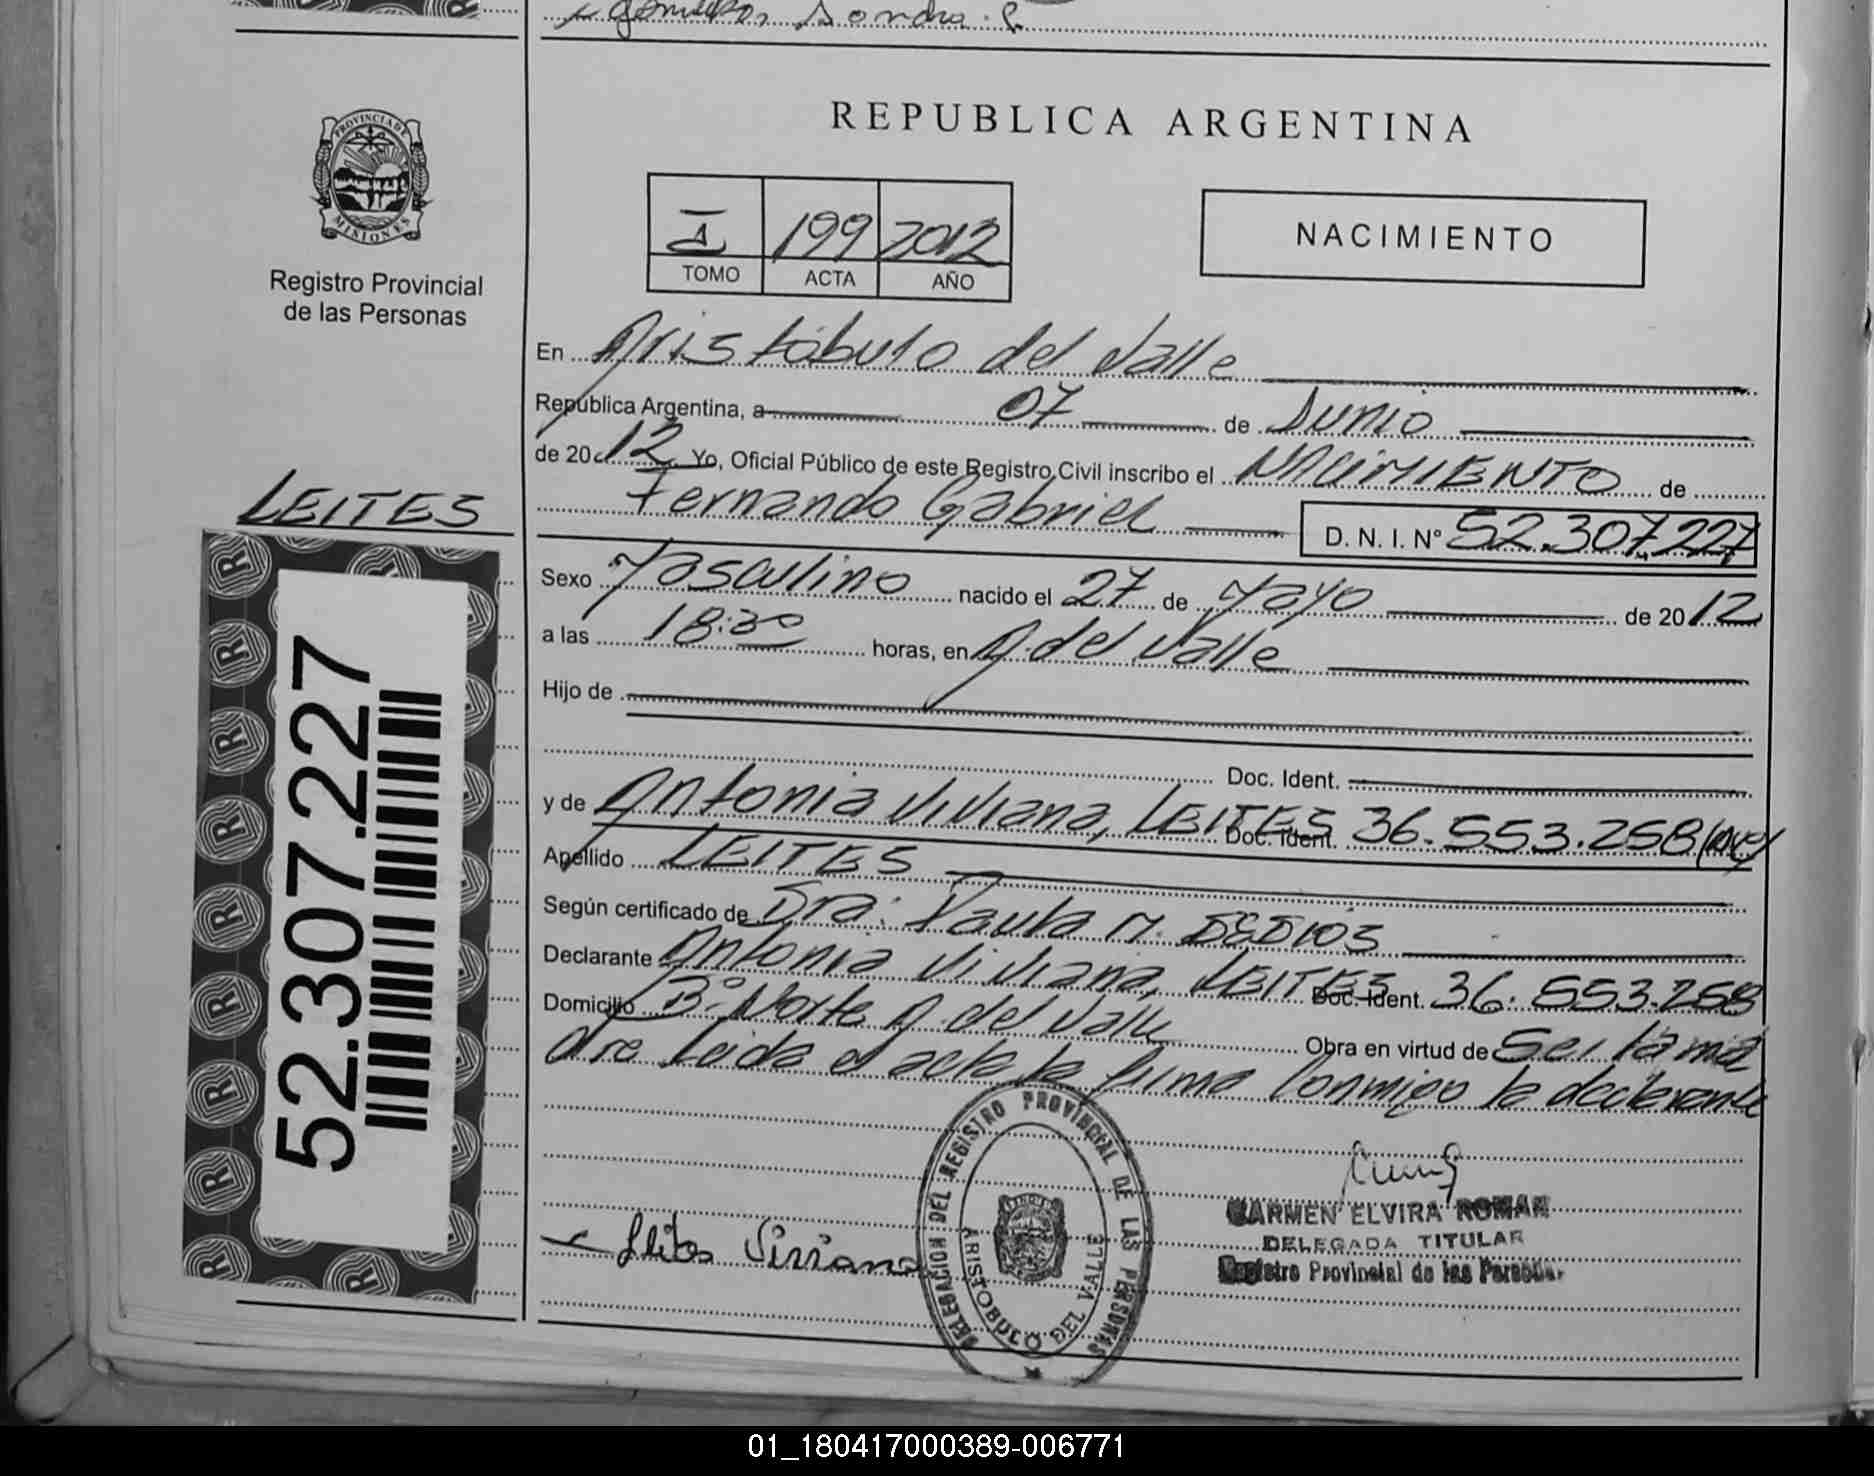 Gonzalez Sandra P.
PROVINCIA DE
MISIONES
Registro Provincial
de las Personas
REPUBLICA ARGENTINA
I 199 2012
TOMO ACTA AÑO
NACIMIENTO
En Aristóbulo del Valle
República Argentina, a 07 de Junio
de 20 12 Yo, Oficial Público de este Registro Civil inscribo el NACIMIENTO de
LEITES
Fernando Gabriel D. N. I. Nº 52.307.227
Sexo Masculino nacido el 27 de Mayo de 20 12
a las 18:30 horas, en A. del Valle
Hijo de
Doc. Ident.
y de Antonia Viviana, LEITES Doc. Ident. 36.553.258
Apellido LEITES
Según certificado de Dra. Paula M. DEDIOS
Declarante Antonia Viviana, LEITES Doc. Ident. 36.553.258
Domicilio Bº Norte A. del Valle Obra en virtud de Ser la ma
dre Leida el acta la firma conmigo la declarante
52.307.227
DELEGACION DEL REGISTRO PROVINCIAL DE LAS PERSONAS
ARISTOBULO DEL VALLE
CARMEN ELVIRA ROMAN
DELEGADA TITULAR
Registro Provincial de las Personas
Leites Viviana
01_180417000389-006771